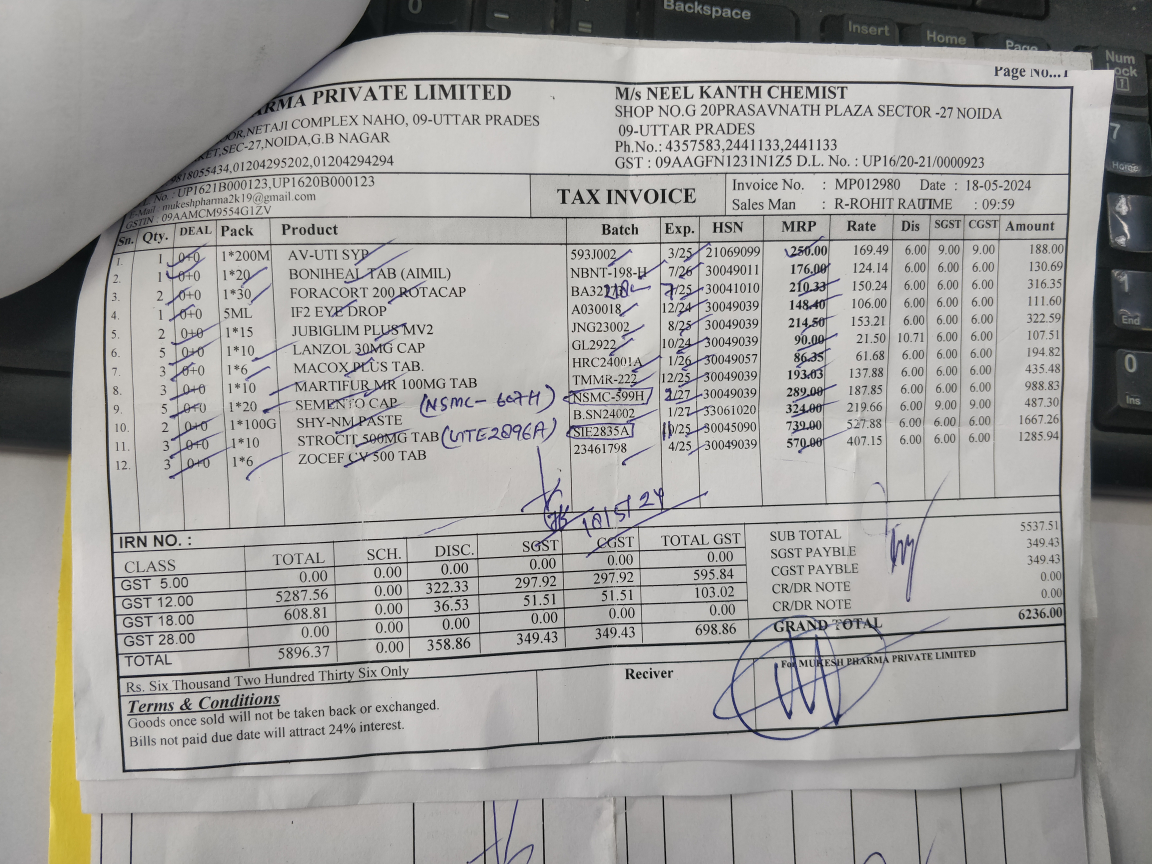 Backspace
Insert
Home
Page
Num
Lock
7
Home
4
1
End
0
Ins
Page No...1
PHARMA PRIVATE LIMITED
NETAJI COMPLEX NAHO, 09-UTTAR PRADES
SEC-27,NOIDA,G.B NAGAR
9818055434,01204295202,01204294294
No. : UP1621B000123,UP1620B000123
E-Mail : mukeshpharma2k19@gmail.com
GSTIN : 09AAMCM9554G1ZV
M/s NEEL KANTH CHEMIST
SHOP NO.G 20PRASAVNATH PLAZA SECTOR -27 NOIDA
09-UTTAR PRADES
Ph.No.: 4357583,2441133,2441133
GST : 09AAGFN1231N1Z5 D.L. No. : UP16/20-21/0000923
TAX INVOICE
Invoice No. : MP012980 Date : 18-05-2024
Sales Man : R-ROHIT RAUTIME : 09:59
Sn. Qty. DEAL Pack Product Batch Exp. HSN MRP Rate Dis SGST CGST Amount
1. 1 0+0 1*200M AV-UTI SYP 593J002 3/25 21069099 250.00 169.49 6.00 9.00 9.00 188.00
2. 1 0+0 1*20 BONIHEAL TAB (AIMIL) NBNT-198-H 7/26 30049011 176.00 124.14 6.00 6.00 6.00 130.69
3. 2 0+0 1*30 FORACORT 200 ROTACAP 7/25 30041010 210.33 150.24 6.00 6.00 6.00 316.35
4. 1 0+0 5ML IF2 EYE DROP A030018 12/24 30049039 148.40 106.00 6.00 6.00 6.00 111.60
5. 2 0+0 1*15 JUBIGLIM PLUS MV2 JNG23002 8/25 30049039 214.50 153.21 6.00 6.00 6.00 322.59
6. 5 0+0 1*10 LANZOL 30MG CAP GL2922 10/24 30049039 90.00 21.50 10.71 6.00 6.00 107.51
7. 3 0+0 1*6 MACOX PLUS TAB. HRC24001A 1/26 30049057 86.35 61.68 6.00 6.00 6.00 194.82
8. 3 0+0 1*10 MARTIFUR MR 100MG TAB TMMR-222 12/25 30049039 193.03 137.88 6.00 6.00 6.00 435.48
9. 5 0+0 1*20 SEMENTO CAP (NSMC-607H) NSMC-599H 2/27 30049039 289.00 187.85 6.00 6.00 6.00 988.83
10. 2 0+0 1*100G SHY-NM PASTE B.SN24002 1/27 33061020 324.00 219.66 6.00 9.00 9.00 487.30
11. 3 0+0 1*10 STROCIT 500MG TAB (UTE2896A) SIE2835A 11/25 30045090 739.00 527.88 6.00 6.00 6.00 1667.26
12. 3 0+0 1*6 ZOCEF CV 500 TAB 23461798 4/25 30049039 570.00 407.15 6.00 6.00 6.00 1285.94
18/5/24
IRN NO. :
CLASS TOTAL SCH. DISC. SGST CGST TOTAL GST
GST 5.00 0.00 0.00 0.00 0.00 0.00 0.00
GST 12.00 5287.56 0.00 322.33 297.92 297.92 595.84
GST 18.00 608.81 0.00 36.53 51.51 51.51 103.02
GST 28.00 0.00 0.00 0.00 0.00 0.00 0.00
TOTAL 5896.37 0.00 358.86 349.43 349.43 698.86
SUB TOTAL 5537.51
SGST PAYBLE 349.43
CGST PAYBLE 349.43
CR/DR NOTE 0.00
CR/DR NOTE 0.00
GRAND TOTAL 6236.00
Rs. Six Thousand Two Hundred Thirty Six Only
Terms & Conditions
Goods once sold will not be taken back or exchanged.
Bills not paid due date will attract 24% interest.
Reciver
For MUKESH PHARMA PRIVATE LIMITED